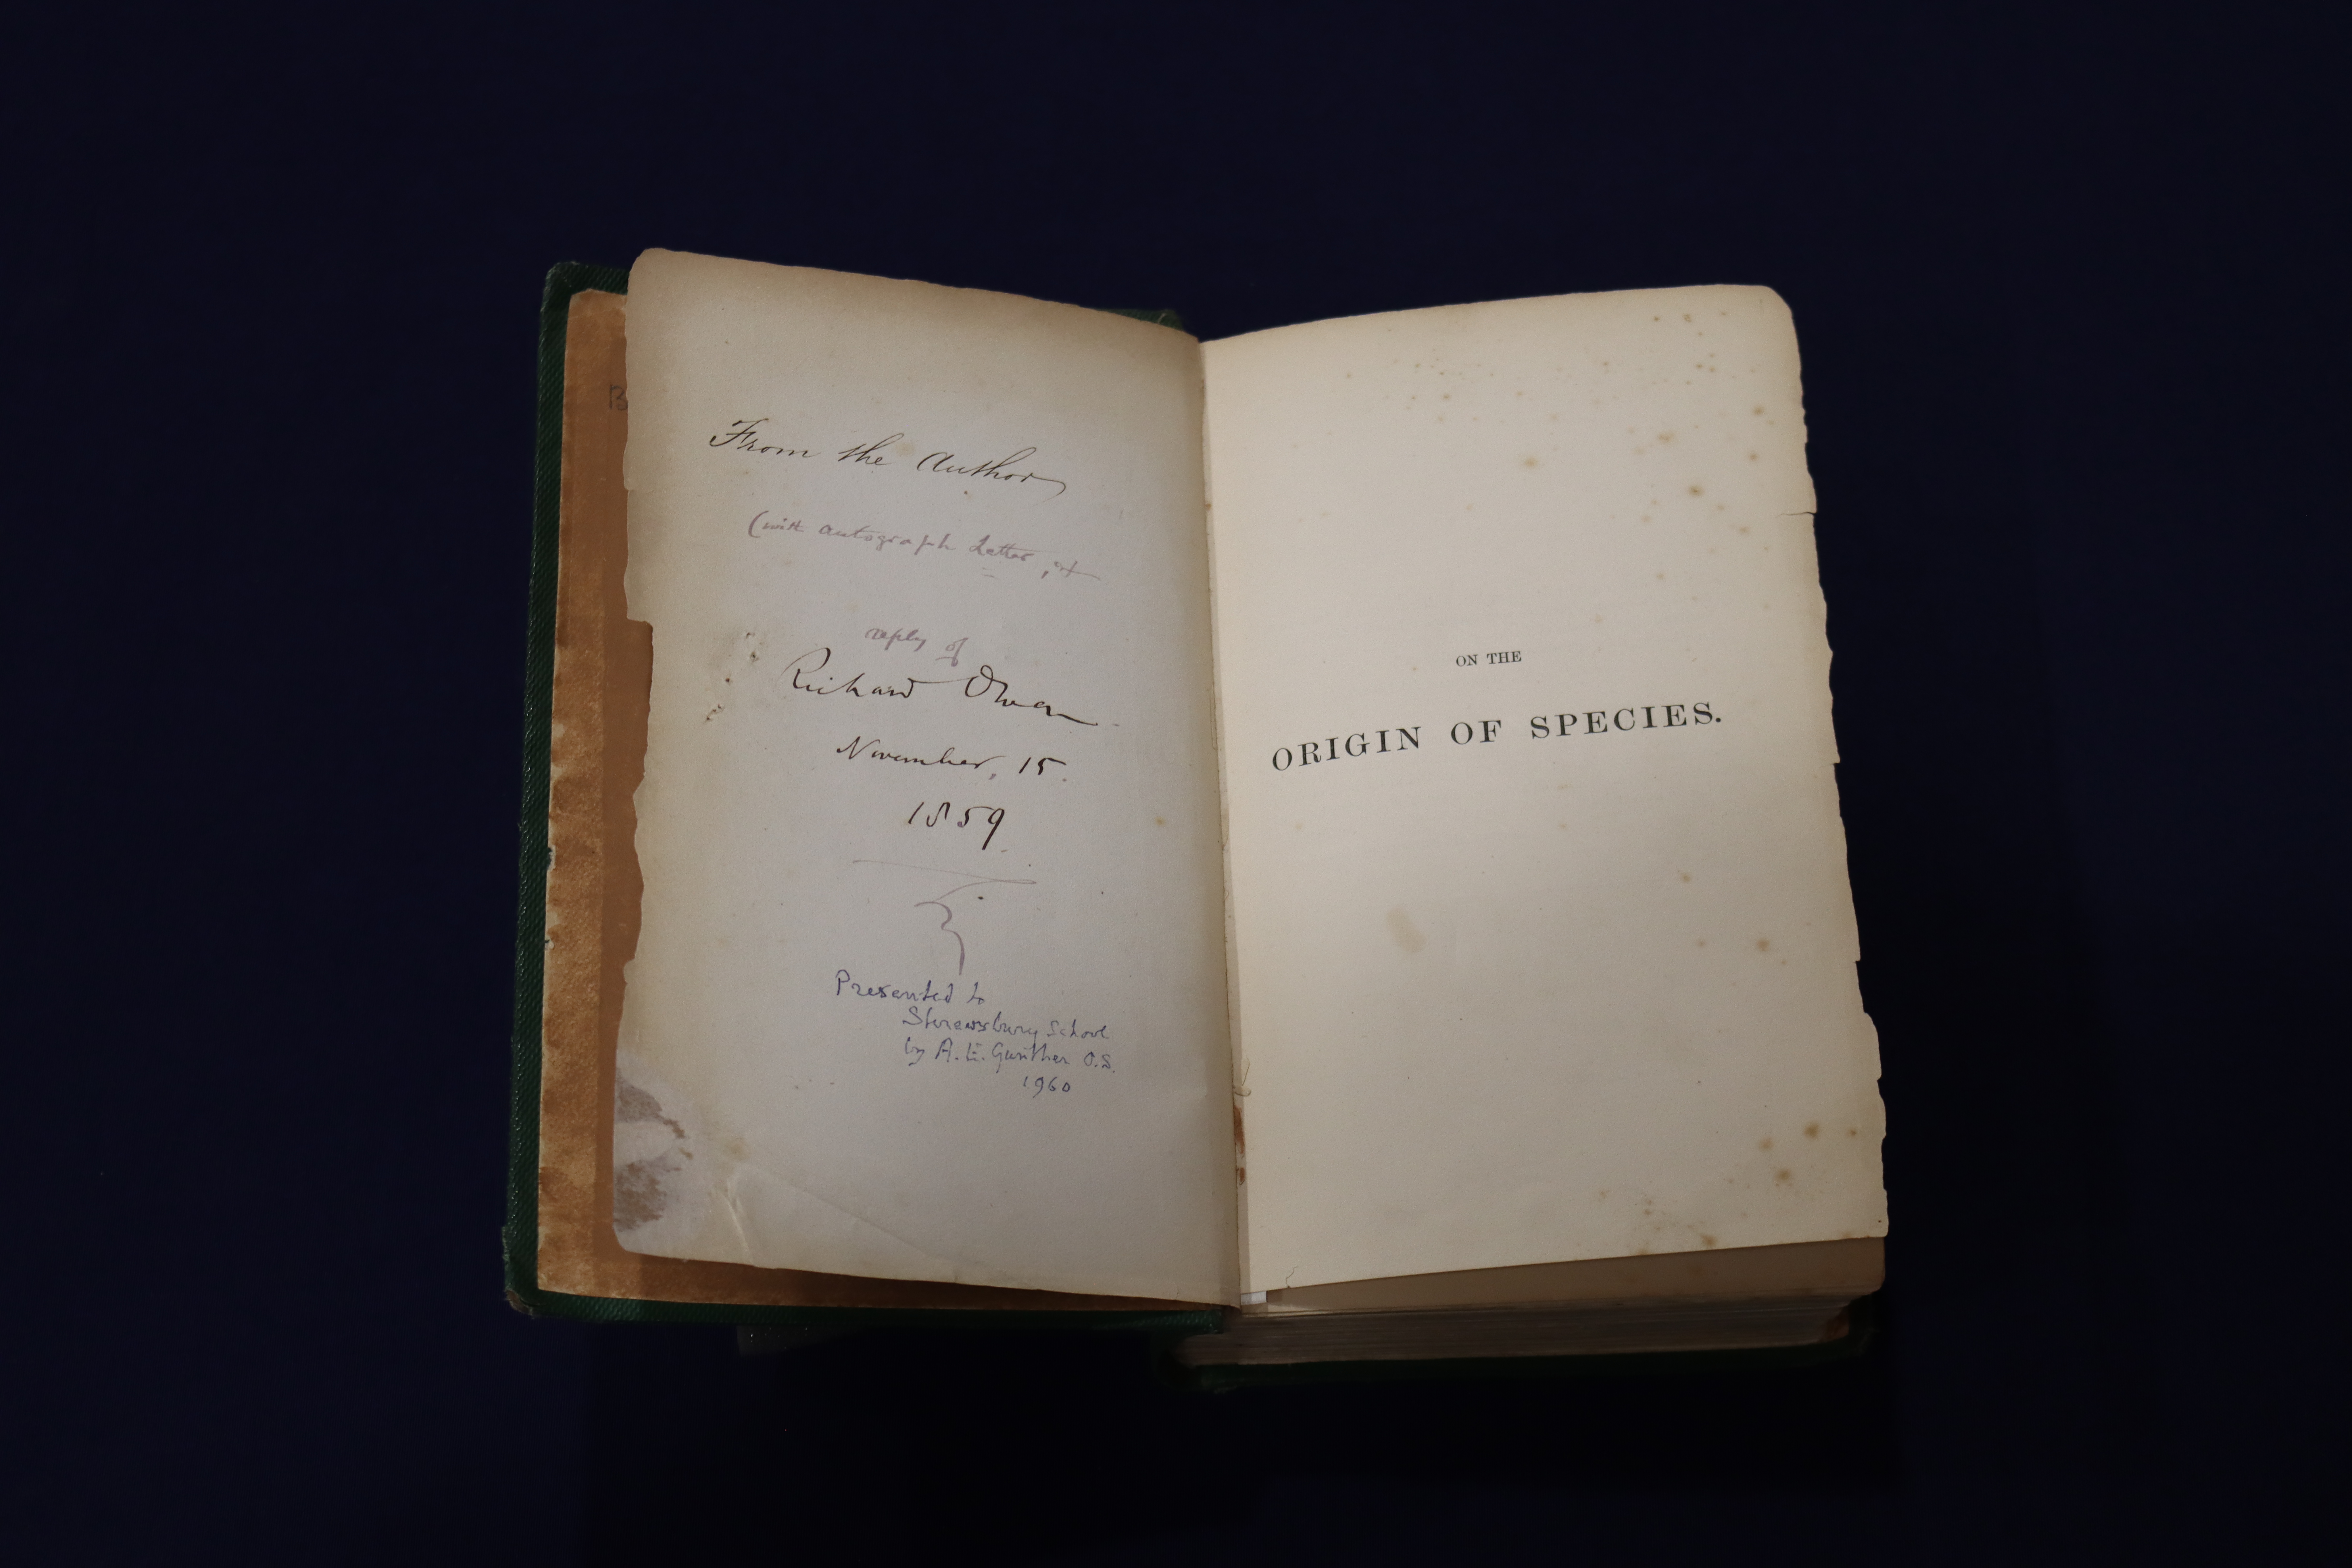 B
From the Author
(with autograph Letter, &
reply of
Richard Owen
November, 15.
1859
Presented to
Shrewsbury School
by A. E. Gunther O.S.
1960
ON THE
ORIGIN OF SPECIES.